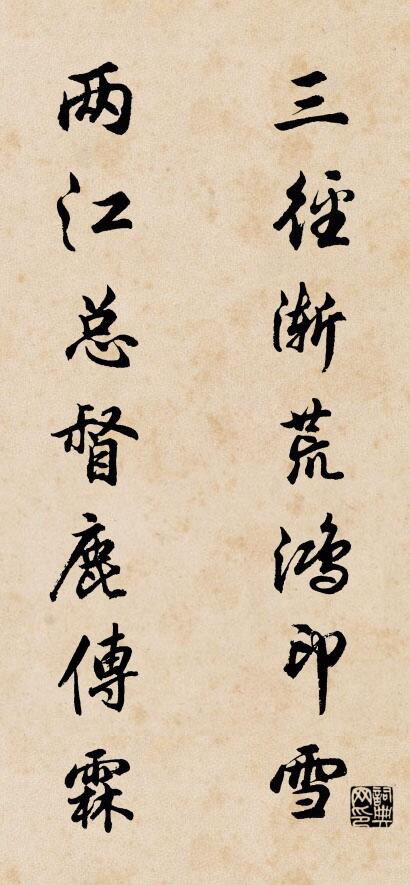 三径渐荒鸿印雪
两江总督鹿傳霖
詞典网印